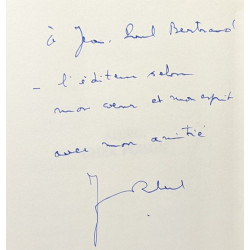 à Jean-Paul Bertrand
- l'éditeur selon
mon cœur et mon esprit
avec mon amitié